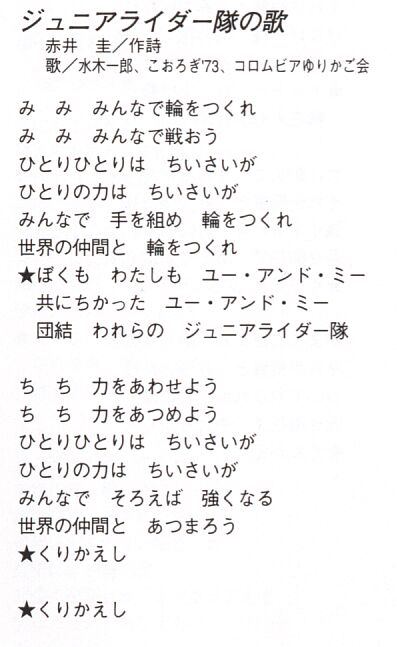 ジュニアライダー隊の歌
赤井　圭／作詩
歌／水木一郎、こおろぎ'73、コロムビアゆりかご会
み　み　みんなで輪をつくれ
み　み　みんなで戦おう
ひとりひとりは　ちいさいが
ひとりの力は　ちいさいが
みんなで　手を組め　輪をつくれ
世界の仲間と　輪をつくれ
★ぼくも　わたしも　ユー・アンド・ミー
共にちかった　ユー・アンド・ミー
団結　われらの　ジュニアライダー隊
ち　ち　力をあわせよう
ち　ち　力をあつめよう
ひとりひとりは　ちいさいが
ひとりの力は　ちいさいが
みんなで　そろえば　強くなる
世界の仲間と　あつまろう
★くりかえし
★くりかえし